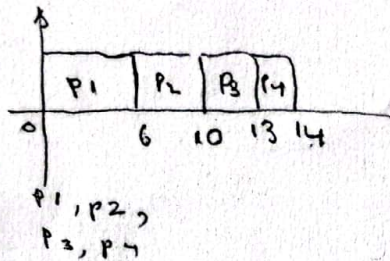 P1 P2 P3 P4
0 6 10 13 14
P1, P2,
P3, P4